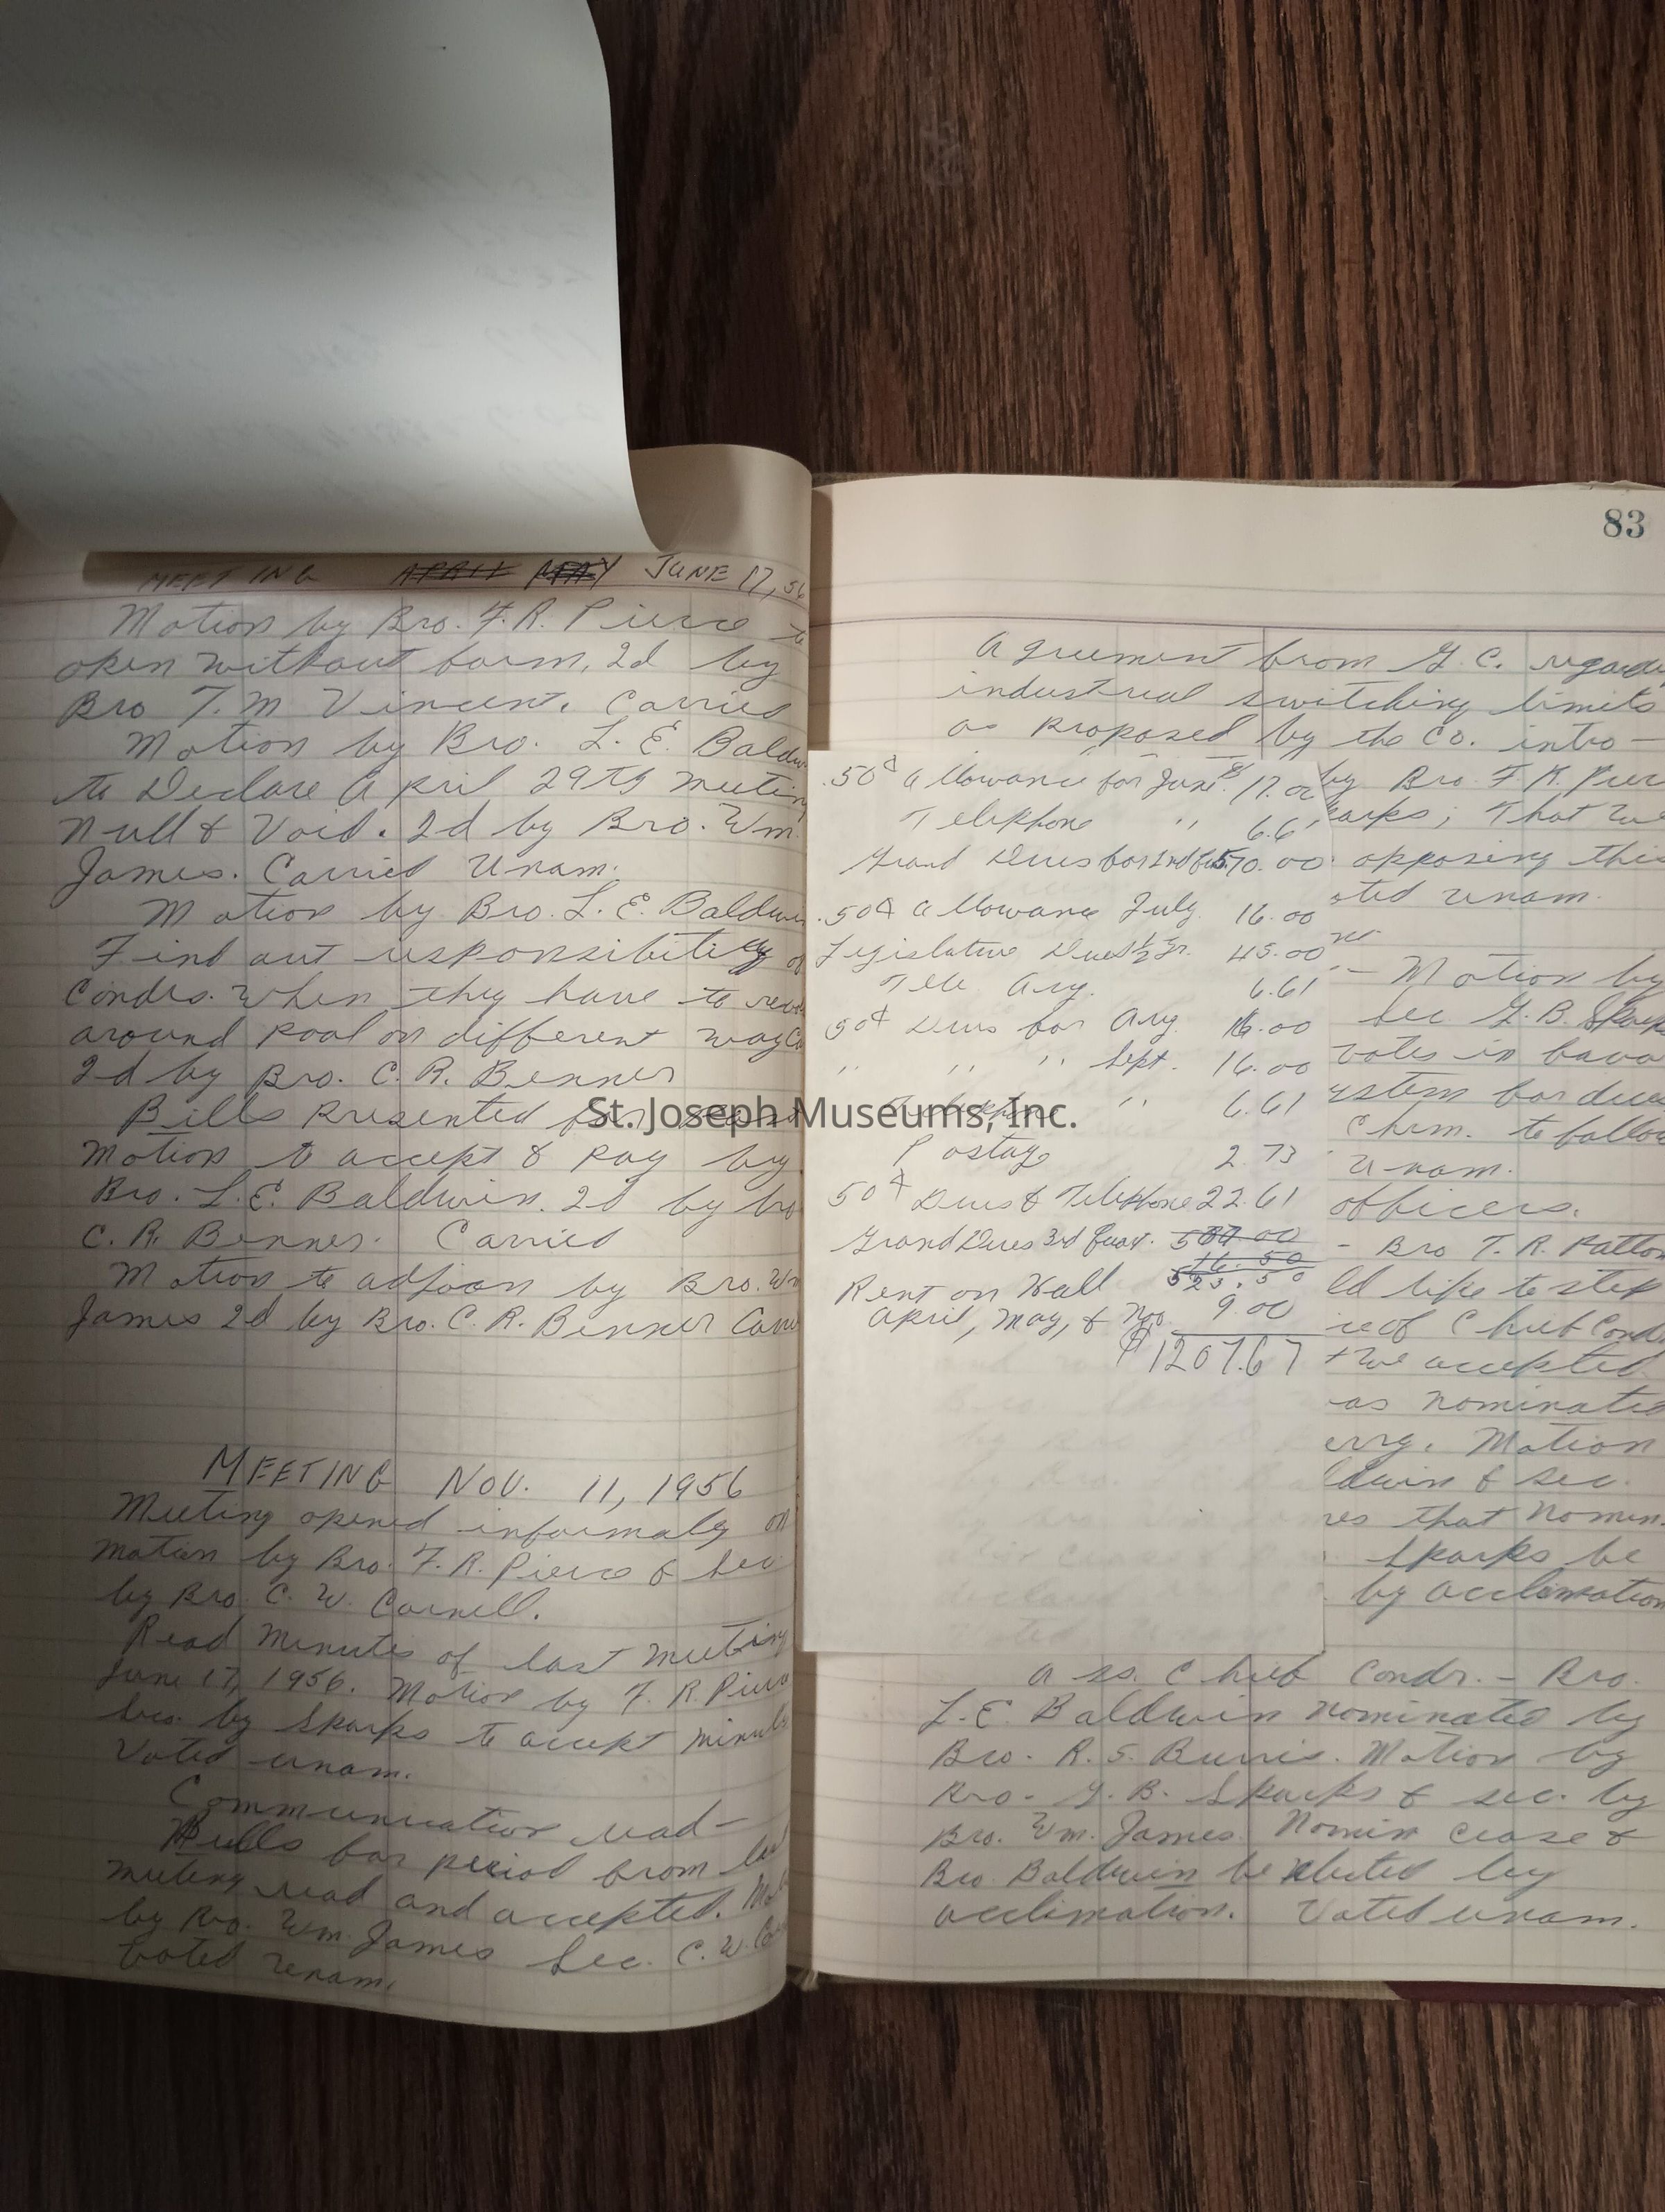 MEETING APRIL MAY JUNE 17, 56
Motion by Bro. F. R. Pierce to
open without form, 2d by
Bro T. M Vincent. Carried
Motion by Bro. L. E. Baldw
to Declare April 29th meeting
Null & Void. 2d by Bro. Wm.
James. Carried Unam.
Motion by Bro. L. E. Baldwin
Find out responsibility of
Condrs. When they have to
around pool on different way
2d by Bro. C. R. Benner
Bills Presented for
Motion to accept & pay by
Bro. L. E. Baldwin. 2d by bro
C. R. Benner. Carried
Motion to adjoan by Bro. Wm
James 2d by Bro. C. R. Benner Carri
MEETING NOV. 11, 1956
Meeting opened informaly on
motion by Bro. F. R. Pierce & Sec
by Bro. C. W. Cornell.
Read Minutes of last meeting
June 17, 1956. Motion by F. R. Pierce
Sec. by Sparks to accept minuts
Voted unam.
Communication read—
Bills for period from last
meeting read and accepted. Mot
by Bro. Wm. James Sec. C. W. Co
Voted unam.
83
Agreement from G. C. regardi
industrial switching limits
as proposed by the Co. intro—
by Bro. F. R. Pier
arks; That we
opposing this
oted unam.
— Motion by
Sec G. B. Spark
votes in favo
ystem for dues
Chrm. to follow
Unam.
officers.
- Bro T. R. Patton
ld like to step
ice of Chief Cond.
+ we accepted
as nominated
erry. Motion
ldwin & sec.
res that Nomin.
Sparks be
by acclimation
.50¢ Allowance for June. 17.00
Telephone " 6.61
Grand Dues for 2nd 570.00
.50¢ Allowance July 16.00
Legislative Dues 1/2 yr. 45.00
Tele Aug. 6.61
50¢ Dues for Aug. 16.00
" " " Sept. 16.00
Telephone " 6.61
Postage 2.73
50¢ Dues & Telephone 22.61
Grand Dues 3rd Quar. 500 00
16.50
523.50
Rent on Hall
April, May, & Nov. 9.00
$1207.67
Ass. Chief Condr. — Bro.
L. E. Baldwin nominated by
Bro. R. S. Burris. Motion by
Bro. G. B. Sparks & sec. by
Bro. Wm. James Nomin cease &
Bro. Baldwin be elected by
acclimation. Voted unam.
St. Joseph Museums, Inc.